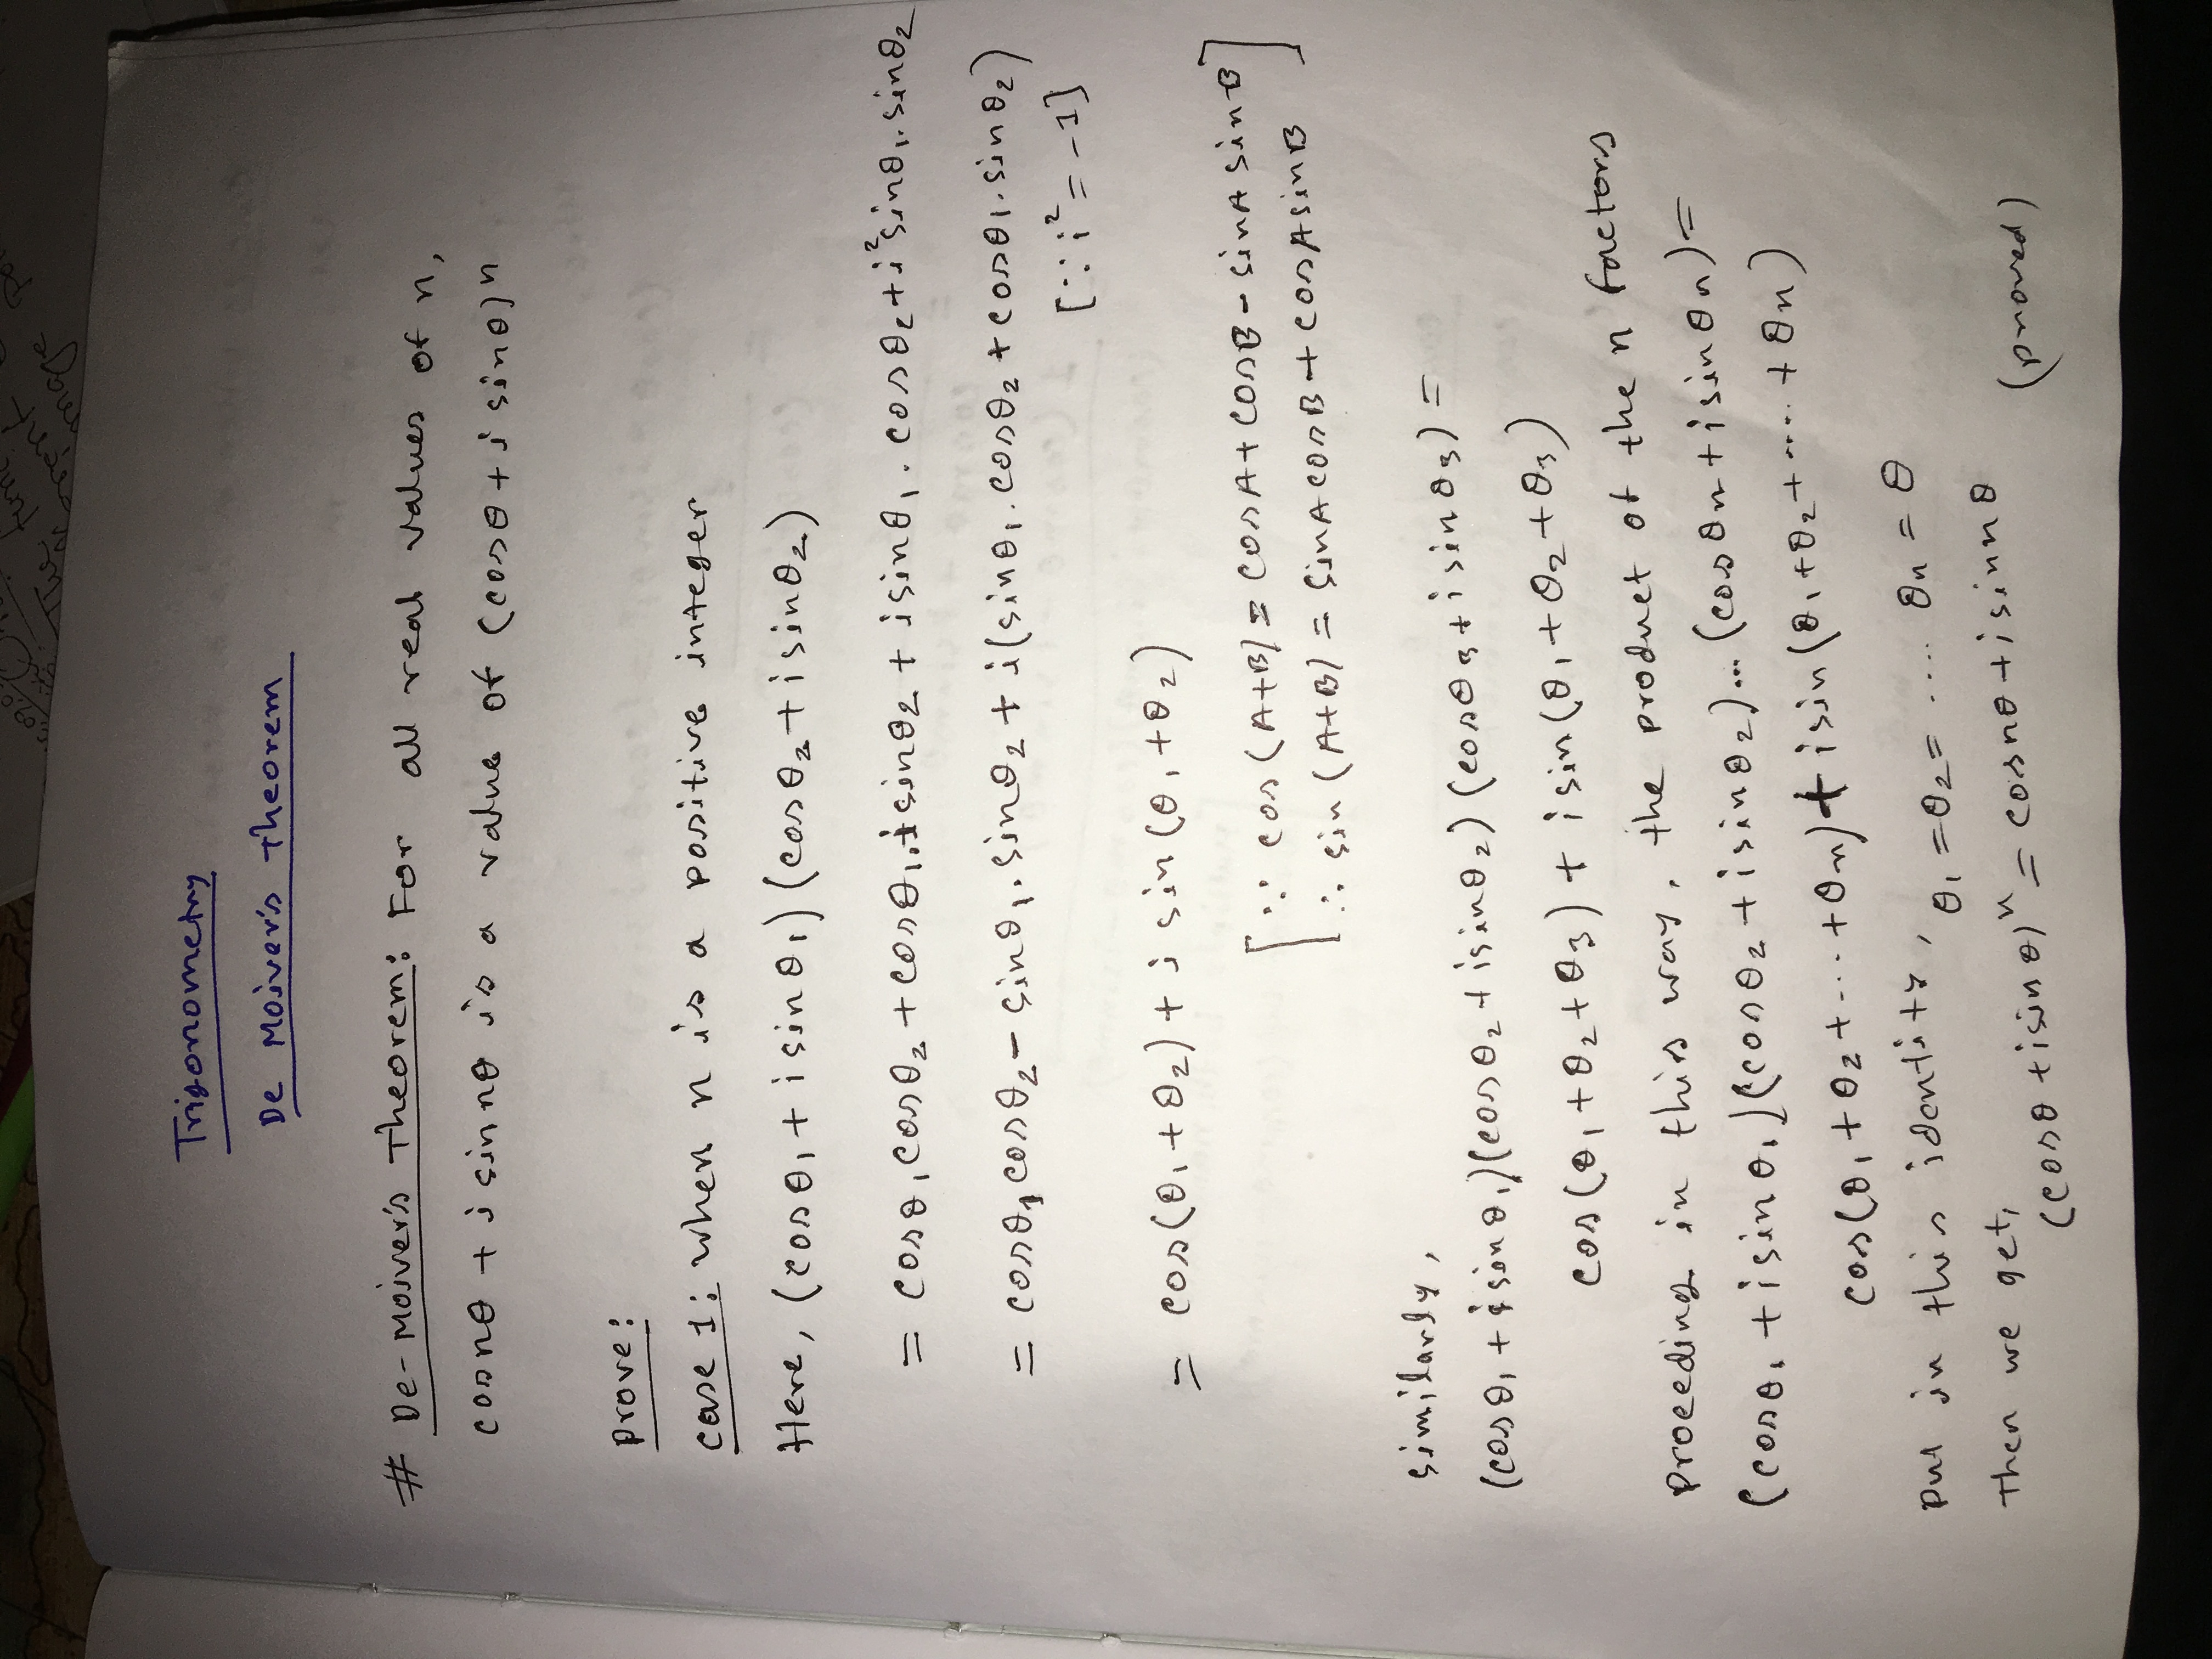 The
Trigonometry
De Moiver's Theorem
# De-Moiver's Theorem: For all real values of n,
cosnθ + i sin nθ is a value of (cosθ + i sinθ)ⁿ
prove:
case 1: when n is a positive integer
Here, (cosθ₁ + i sinθ₁) (cosθ₂ + i sinθ₂)
= cosθ₁ cosθ₂ + cosθ₁. i sinθ₂ + i sinθ₁ . cosθ₂ + i² sinθ₁. sinθ₂
= cosθ₁ cosθ₂ - sinθ₁. sinθ₂ + i(sinθ₁. cosθ₂ + cosθ₁. sinθ₂)
[∵ i² = -1]
= cos(θ₁ + θ₂) + i sin(θ₁ + θ₂)
[∵ cos(A+B) = cosA + cosB - sinA sinB]
∴ sin(A+B) = sinA cosB + cosA sinB
similarly,
(cosθ₁ + i sinθ₁)(cosθ₂ + i sinθ₂) (cosθ₃ + i sinθ₃) =
cos(θ₁ + θ₂ + θ₃) + i sin(θ₁ + θ₂ + θ₃)
proceeding in this way, the product of the n factors
(cosθ₁ + i sinθ₁)(cosθ₂ + i sinθ₂)... (cosθn + i sinθn) =
cos(θ₁ + θ₂ + ... + θn) + i sin(θ₁ + θ₂ + .... + θn)
put in this identity, θ₁ = θ₂ = .... θn = θ
Then we get,
(cosθ + i sinθ)ⁿ = cosnθ + i sinnθ (proved)